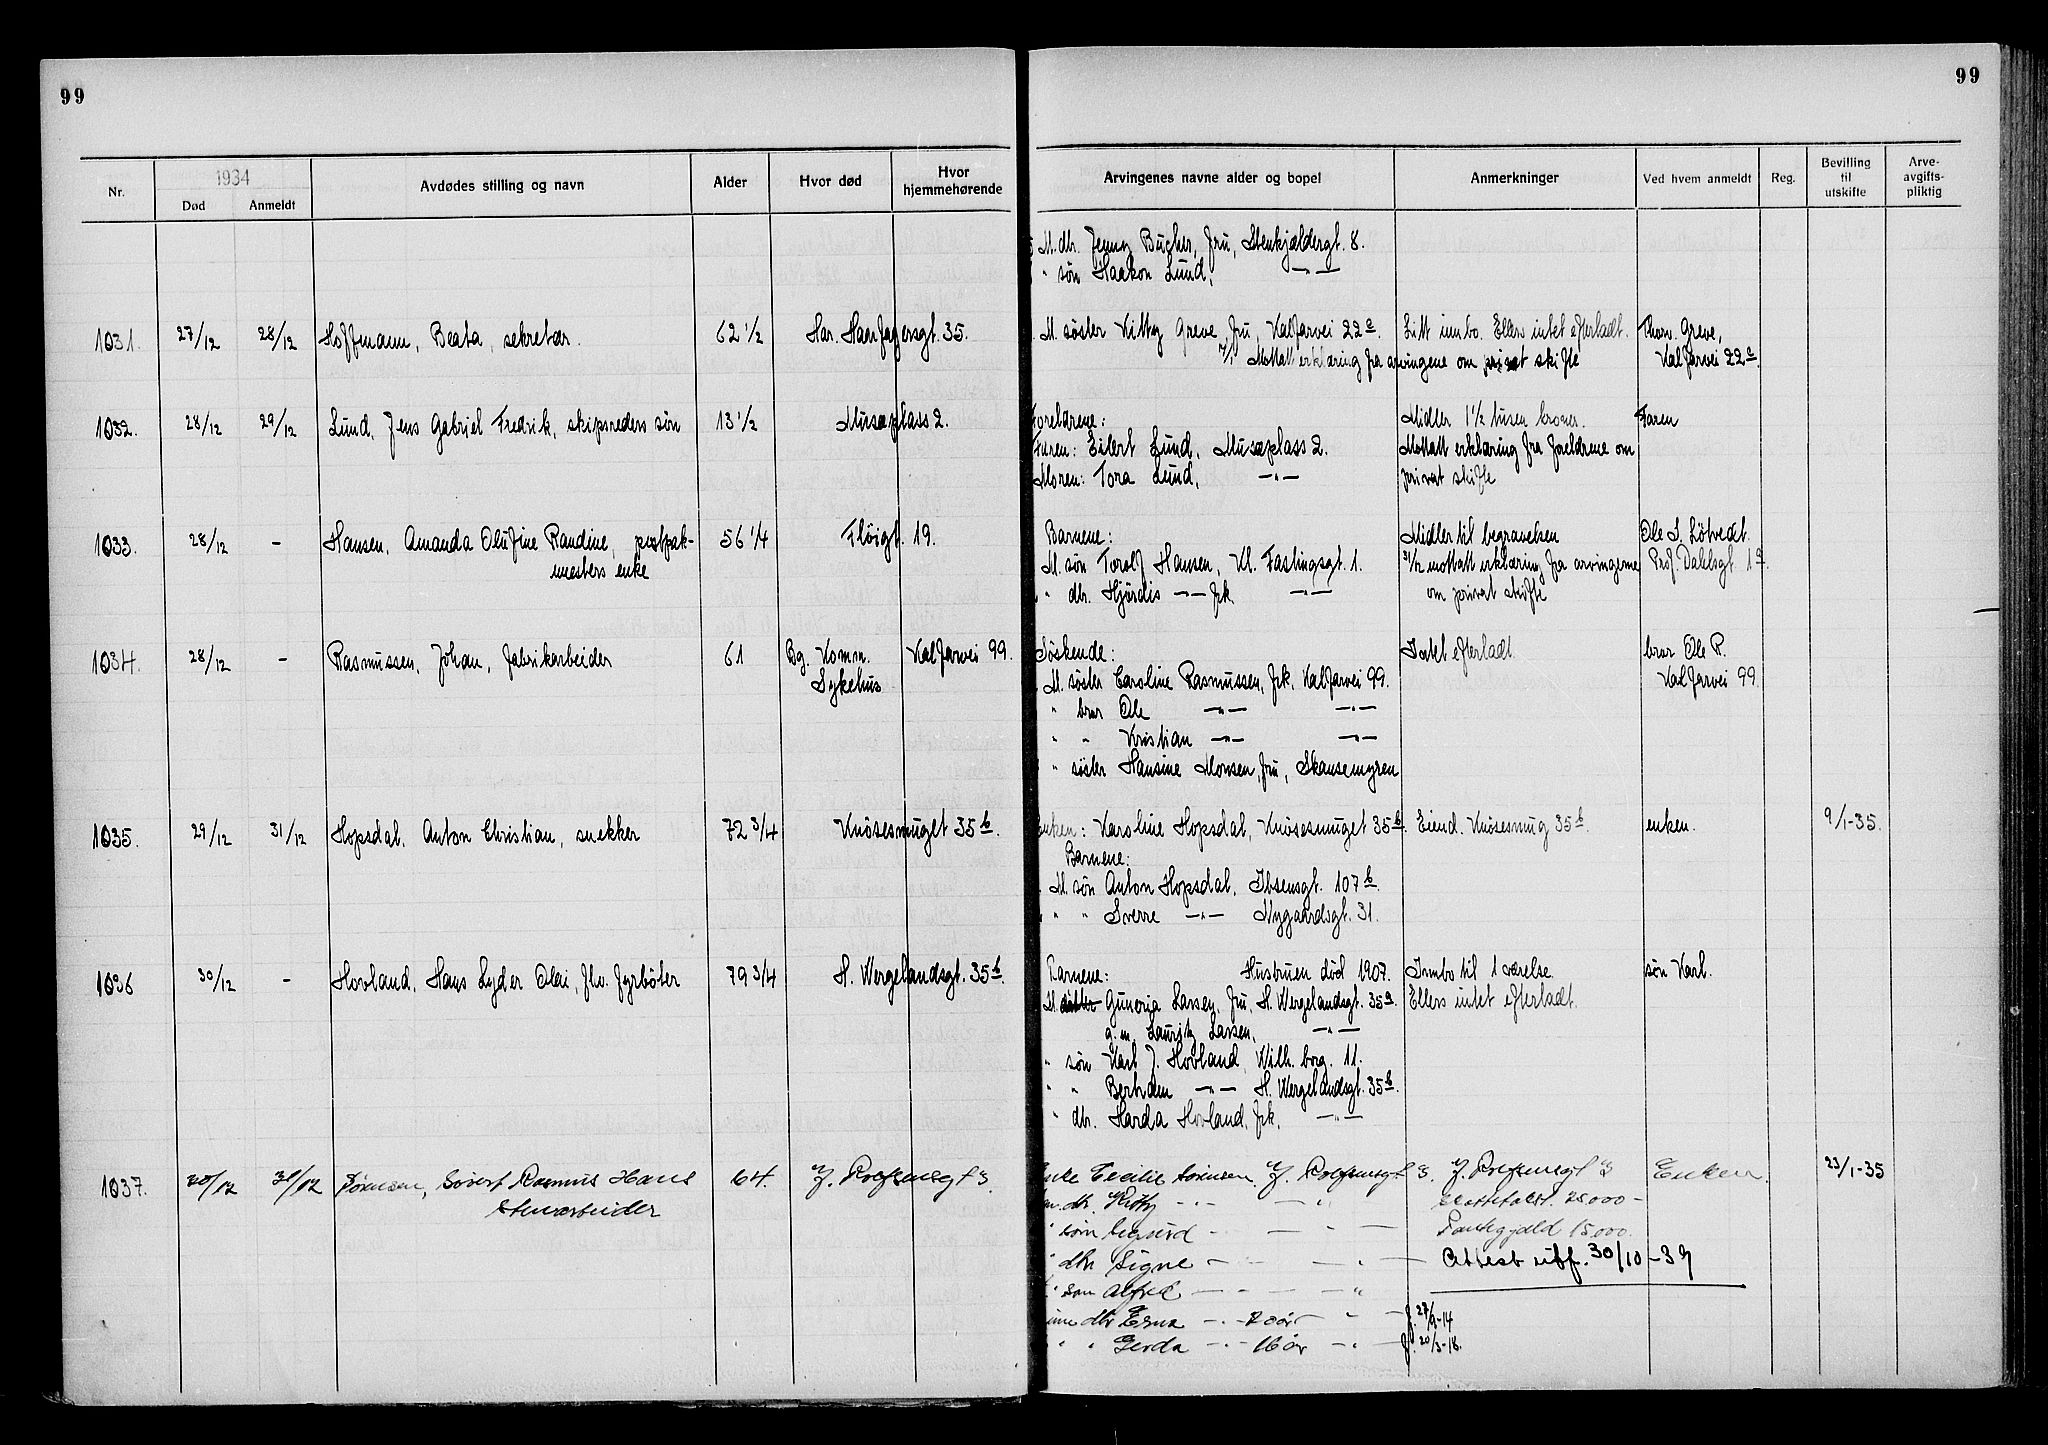 99
99
Nr.
1934
Død
Anmeldt
Avdødes stilling og navn
Alder
Hvor død
Hvor hjemmehørende
Arvingenes navne alder og bopel
Anmerkninger
Ved hvem anmeldt
Reg.
Bevilling til utskifte
Arve-avgifts-pliktig
M. dtr. Jenny Bucher, fru, Stenkjældergt. 8.
" søn Haakon Lund, —"—
1031. 27/12 28/12 Hoffmann, Beata, sekretær. 62 1/2 Har. Haarfagersgt. 35. M. søster Kitty Greve, fru, Kalfarvei 22a. Litt innbo. Ellers intet efterladt. Thorv. Greve,
7/1 Mottatt erklæring fra arvingene om privat skifte Kalfarvei 22a.
1032. 28/12 29/12 Lund, Jens Gabriel Fredrik, skipsreders søn 13 1/2 Musæplass 2. Foreldrene: Midler 1 1/2 tusen kroner. Faren
Faren: Eilert Lund, Musæplass 2. Mottatt erklæring fra foreldrene om
Moren: Tora Lund, —"— privat skifte
1033. 28/12 - Hansen, Amanda Olufine Randine, postpak- 56 1/4 Fløigt. 19. Barnene: Midler til begravelsen Ole S. Løtvedt.
mesters enke M. søn Torolf Hansen, Kl. Fastingsgt. 1. 31/12 mottatt erklæring fra arvingerne Prof. Dahlsgt. 1a.
" dtr. Hjørdis —"— frk. —"— om privat skifte
1034. 28/12 - Rasmussen, Johan, fabrikarbeider 61 Bg. Komm. Kalfarvei 99. Søskende: Intet efterladt. bror Ole R.
Sykehus M. søster Caroline Rasmussen, frk, Kalfarvei 99. Kalfarvei 99.
" bror Ole —"— —"—
" " Kristian —"— —"—
" søster Hansine Monsen, fru, Skansemyren
1035. 29/12 31/12 Hopsdal, Anton Christian, snekker 72 3/4 Knøsesmuget 35b. Enken: Karoline Hopsdal, Knøsesmuget 35b. Eiend. Knøsesmug 35b. enken. 9/1-35.
Barnene:
M. søn Anton Hopsdal, Ibsensgt. 107b.
" " Sverre —"— Nygaardsgt. 31.
1036 30/12 - Hovland, Hans Lyder Olai, fhv. fyrbøter 79 3/4 H. Wergelandsgt. 35b. Barnene: Hustruen død 1907. Innbo til 1 værelse. søn Karl.
M. datter Guneria Larsen, fru, H. Wergelandsgt. 35a. Ellers intet efterladt.
g.m. Lauritz Larsen, —"—
" søn Karl J. Hovland, Wilh. borg. 11.
" " Bertram —"— H. Wergelandsgt. 35b.
" dtr. Harda Hovland, frk, —"—
1037. 30/12 31/12 Sørensen, Sivert Rasmus Hans 64. J. Rolfsensgt 3. Enke Cecilie Sørensen, J. Rolfsensgt 3. J. Rolfsensgt 3 Enken. 23/1-35
Stenarbeider m. dtr. Kitty —"— " Skattetakst. 25000 -
" søn Sigurd - — " — Pantegjeld 15,000.
" dtr Signe - — " — Attest utf. 30/10-39
" søn Alfred - — — "
dtr Erna —"— 20 år — " — f. 27/9-14
" " Gerda —"— 16 år — " — f. 20/3-18.